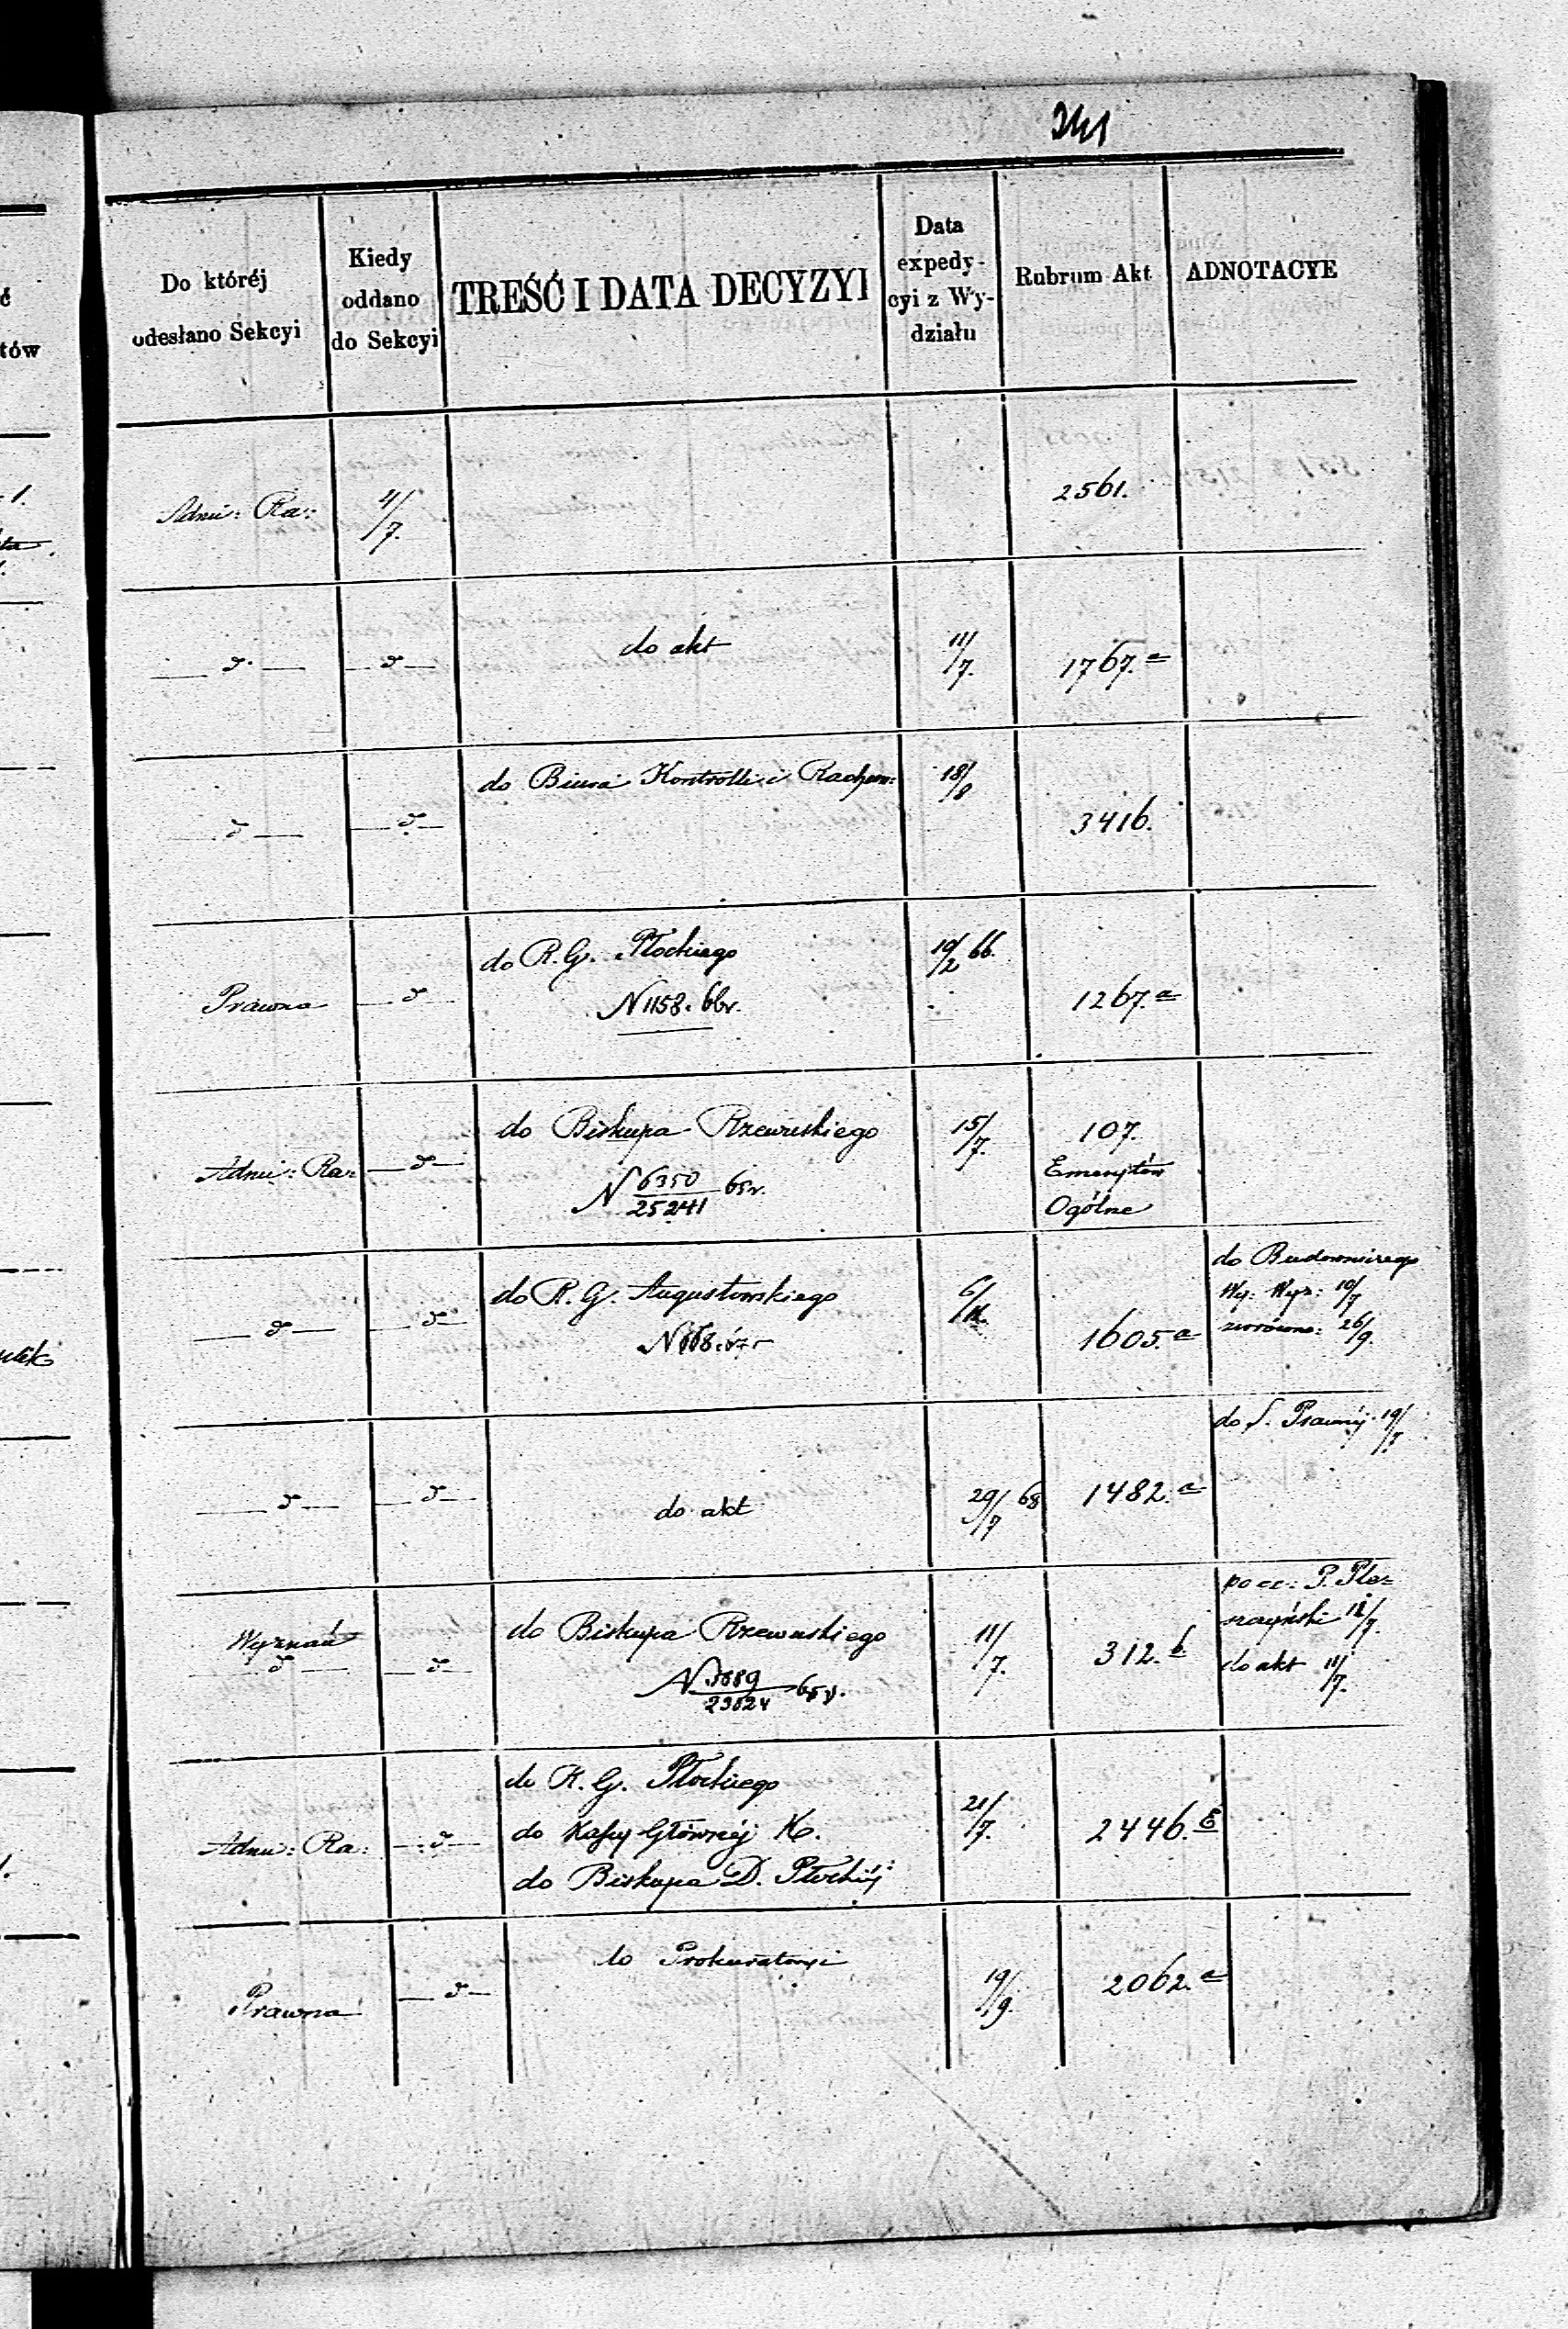 241
Do któréj
odesłano Sekcyi
Kiedy
oddano
do Sekcyi
TREŚĆ I DATA DECYZYI
Data
expedy-
cyi z Wy-
działu
Rubrum Akt
ADNOTACYE
ć
tów
Admi: Ra:
4/7.
2561.
— d° —
— d —
do akt
11/7.
1767. a
— d —
— d —
do Biura Kontrolli i Rachun:
18/8
3416.
Prawna
— d
do R. G. Płockiego
N 1158. 66r.
19/2 66.
1267. a
Admi: Ra:
— d —
do Biskupa Rzewuskiego
N 6350/25241 65r.
15/7.
107.
Emerytów
Ogólne
— d —
— d —
do R. G. Augustowskiego
6/
1605. a
do Budowniczego
Wy: Wyz: 10/7
zwrócono: 26/9.
— d —
— d —
do akt
29/7 68
1482. a
do S. Prawnéj 19/7
Wyznań
— d —
— d —
do Biskupa Rzewuskiego
65r.
11/7.
312. b.
P. Ple-
szczyński 11/7.
do akt 11/7.
Admi: Ra:
— d —
do R. G. Płockiego
do Kassy Głównéj K.
do Biskupa D. Płockiéj
21/7.
2446. E
Prawna
— d —
do Prokuratoryi
19/9.
2062. a